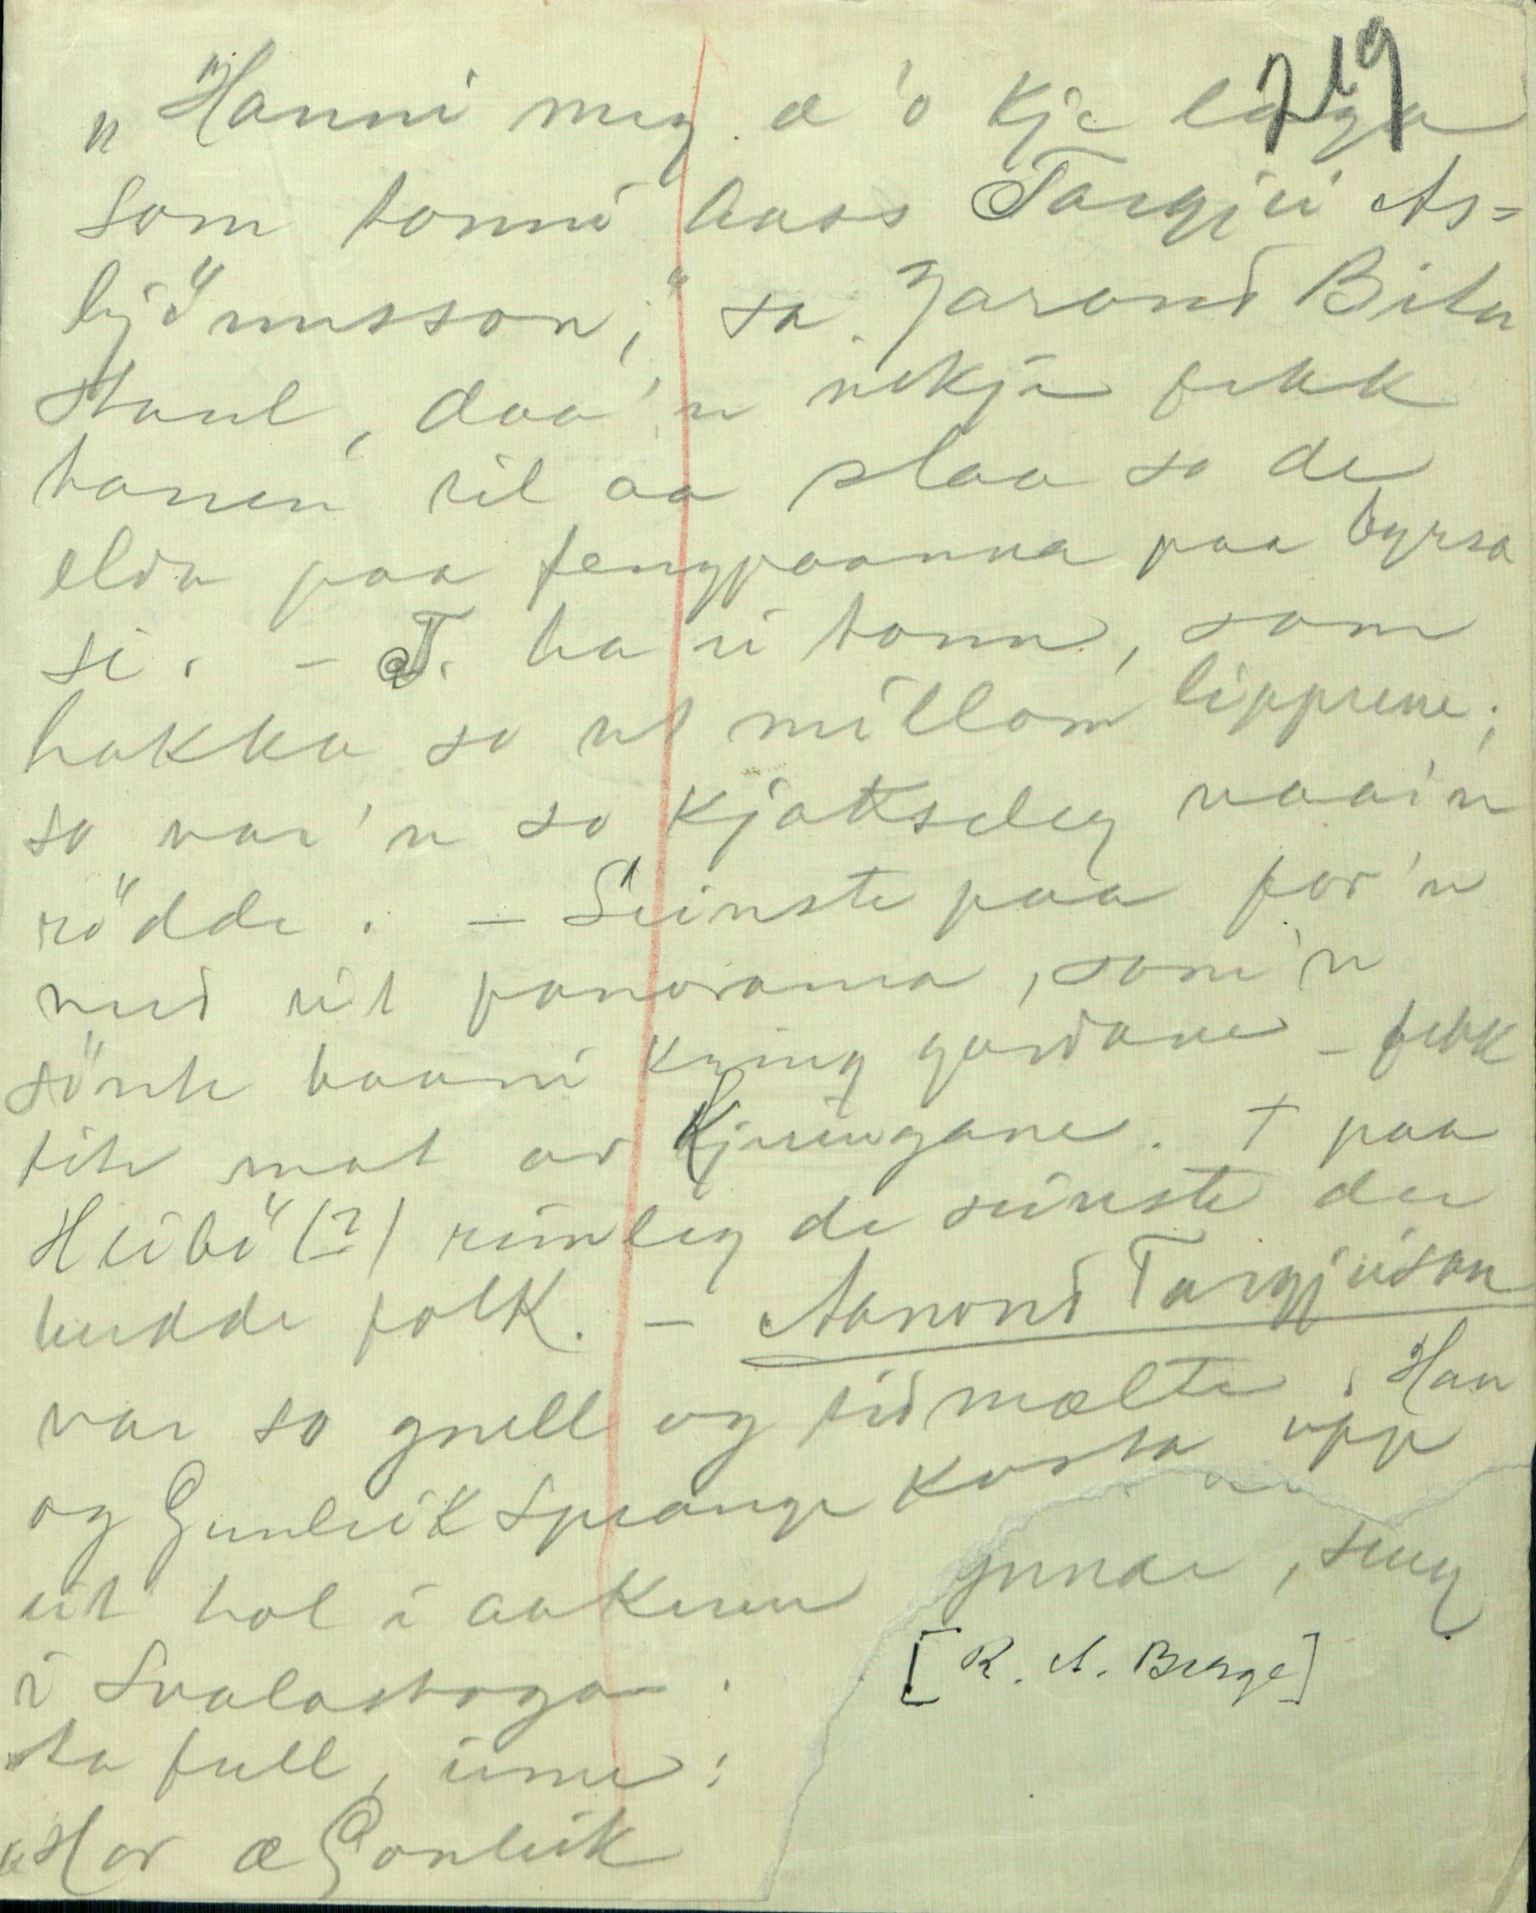 719
"Hanni meg æ 'o kje laga
som tonni hass Targjei As=
bjönnsson," sa Jarond Bita
staul, daa 'n ikkje fekk
hanen til aa slaa so de
elda paa fengpaanna paa byrsa
si. – T. ha ei tonn, som
hakka so ut millom lippune;
so var 'n so kjakseleg vaai'n
rödde. – Seinste paa for 'n
med eit panorama, som 'n
sönte baani kring gardane – fekk
lite mat av kjeringane. † paa
Heibö (?) rimleg de seinste der
budde folk. – Aanond Targjeison
var so gnell og tidmælte. Han
og Gunleik Sprange kasta upp
eit hol i aakeren
i Svalastoga.
ta full, inne:
"Hor æ Gonleik
gunar, seng
[R. A. Berge]